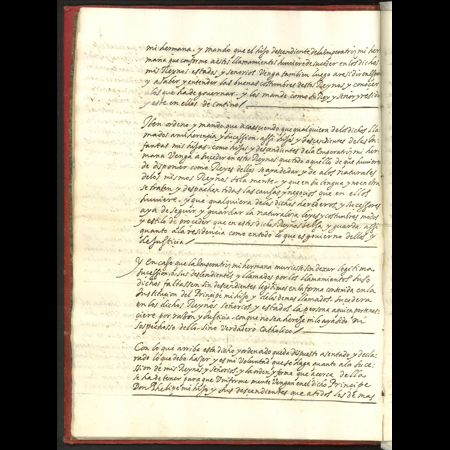 mi hermana, y mando que el hijo descendiente de la Imperatriz mi her
mana que conforme a estos llamamientos huuiere de suceder en los dichos
mis Reynos, estados, y señorios Venga tambien luego a residir en España
y a saber, y entender las buenas costumbres destos Reynos, y conocer
los que ha de gouernar, y los mande como su Rey, y señor y resida
y este en ellos de continuo
Iten ordeno, y mando que acaesciendo que qualquiera de los dichos lla
mados a mi herencia, y sucession, assi hijos y descendientes de las In
fantas mis hijas como hijos y descendientes de la Emperatriz mi her
mana Venga a suceder en estos Reynos que todo aquello de que huuiere
de disponer como Rey en ellos se aya de dar, y de a los naturales
de los mismos Reynos y que en su lengua y no en otra
se traten, y despachen todas las causas y negocios que en ellos
huuiere, y que qualquiera de los dichos herederos, y sucessores
aya de seguir, y guardar la naturaleza leyes y costumbres modos
y estilo de proceder que en estos dichos Reynos se usa, y guarda assi
quanto a la residencia como en todo lo que es gouierno dellos y
de Justicia
Y En caso que la Imperatriz mi hermana muriesse sin dexar legitima
sucession, o sus descendientes y llamados por los llamamientos suso
dichos faltassen sin descendientes legitimos en la forma contenida en la
Institucion del Principe mi hijo, y de los demas llamados sucedera
en los dichos Reynos Señorios, y estados la persona a quien pertenes
ciere por razon y Justicia, con que no sea hereje ni lo aya sido
sospechoso de la sino Verdadero Catholico
Con lo que arriba esta dicho y ordenado queda dispuesto asentado y decla
rado lo que deue hazer, y es mi Voluntad que se haga quanto a la suce
ssion de mis Reynos y Señorios, y la orden y forma que acerca dellos
se ha de tener para que Vniforme mente Vengan en el dicho Principe
Don Phelipe mi hijo y sus descendientes que a todos los demas